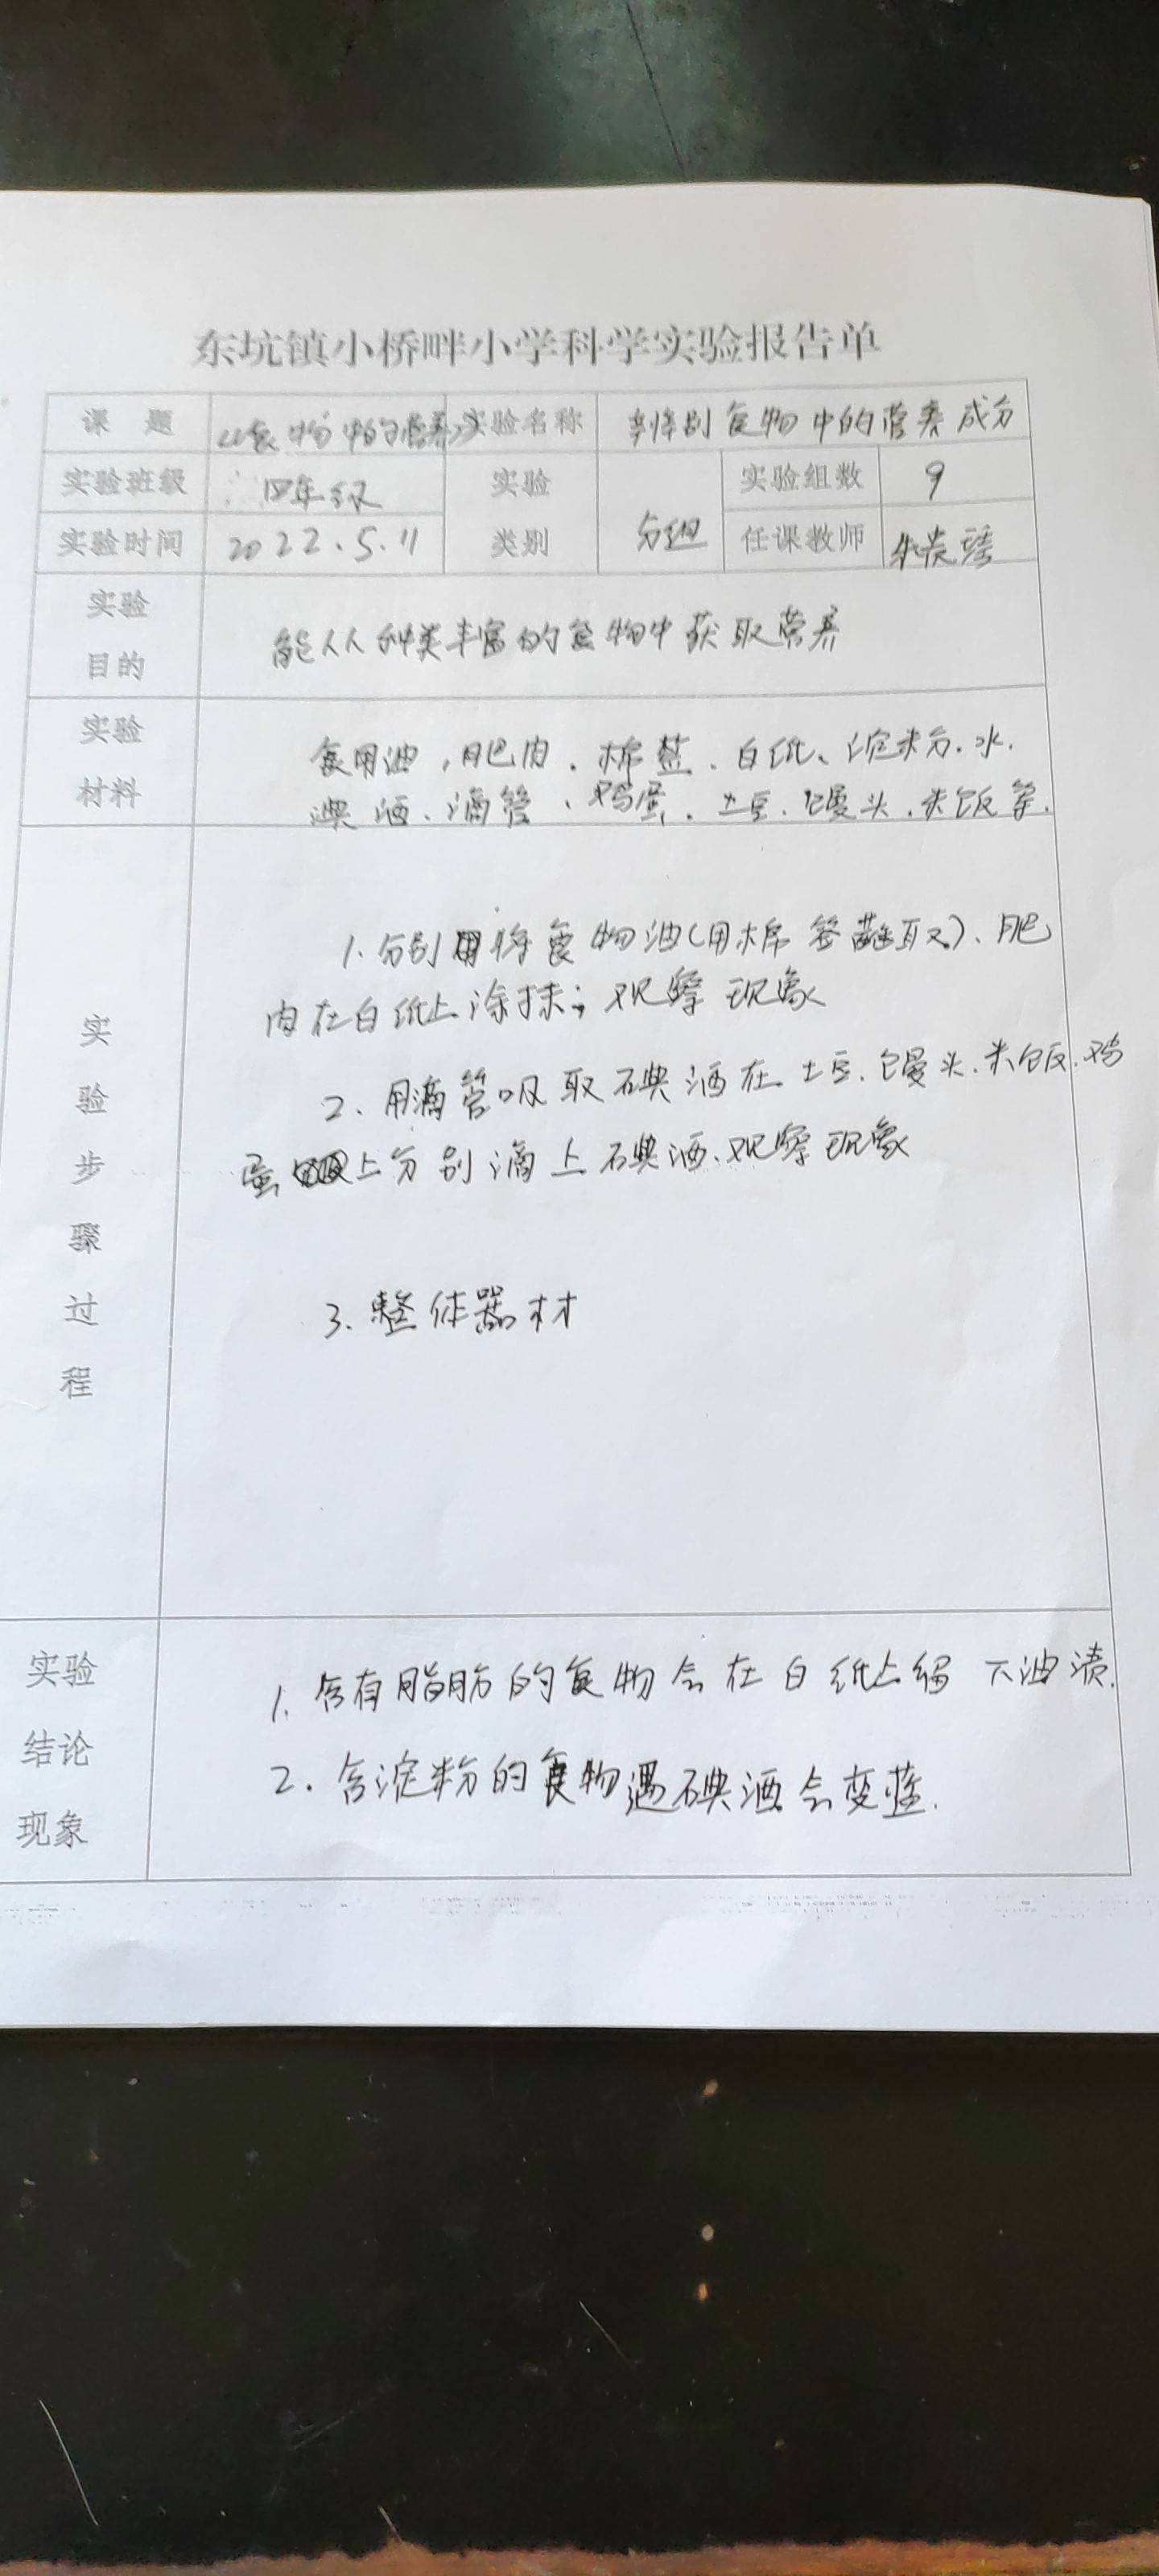 东坑镇小桥畔小学科学实验报告单
课 题 《食物中的营养》 实验名称 判别食物中的营养成分
实验班级 四年级 实验 实验组数 9
实验时间 2022.5.11 类别 分组 任课教师
实验
目的
能从种类丰富的食物中获取营养
实验
材料
食用油,肥肉、棉签、白纸、淀粉、水、
碘酒、滴管、鸡蛋、土豆、馒头、米饭等.
实
验
步
骤
过
程
1.分别将食物油(用棉签蘸取)、肥
肉在白纸上涂抹;观察现象
2、用滴管吸取碘酒在土豆、馒头、米饭、鸡
蛋上分别滴上碘酒、观察现象
3、整体器材
实验
结论
现象
1.含有脂肪的食物会在白纸上留下油渍.
2.含淀粉的食物遇碘酒会变蓝.